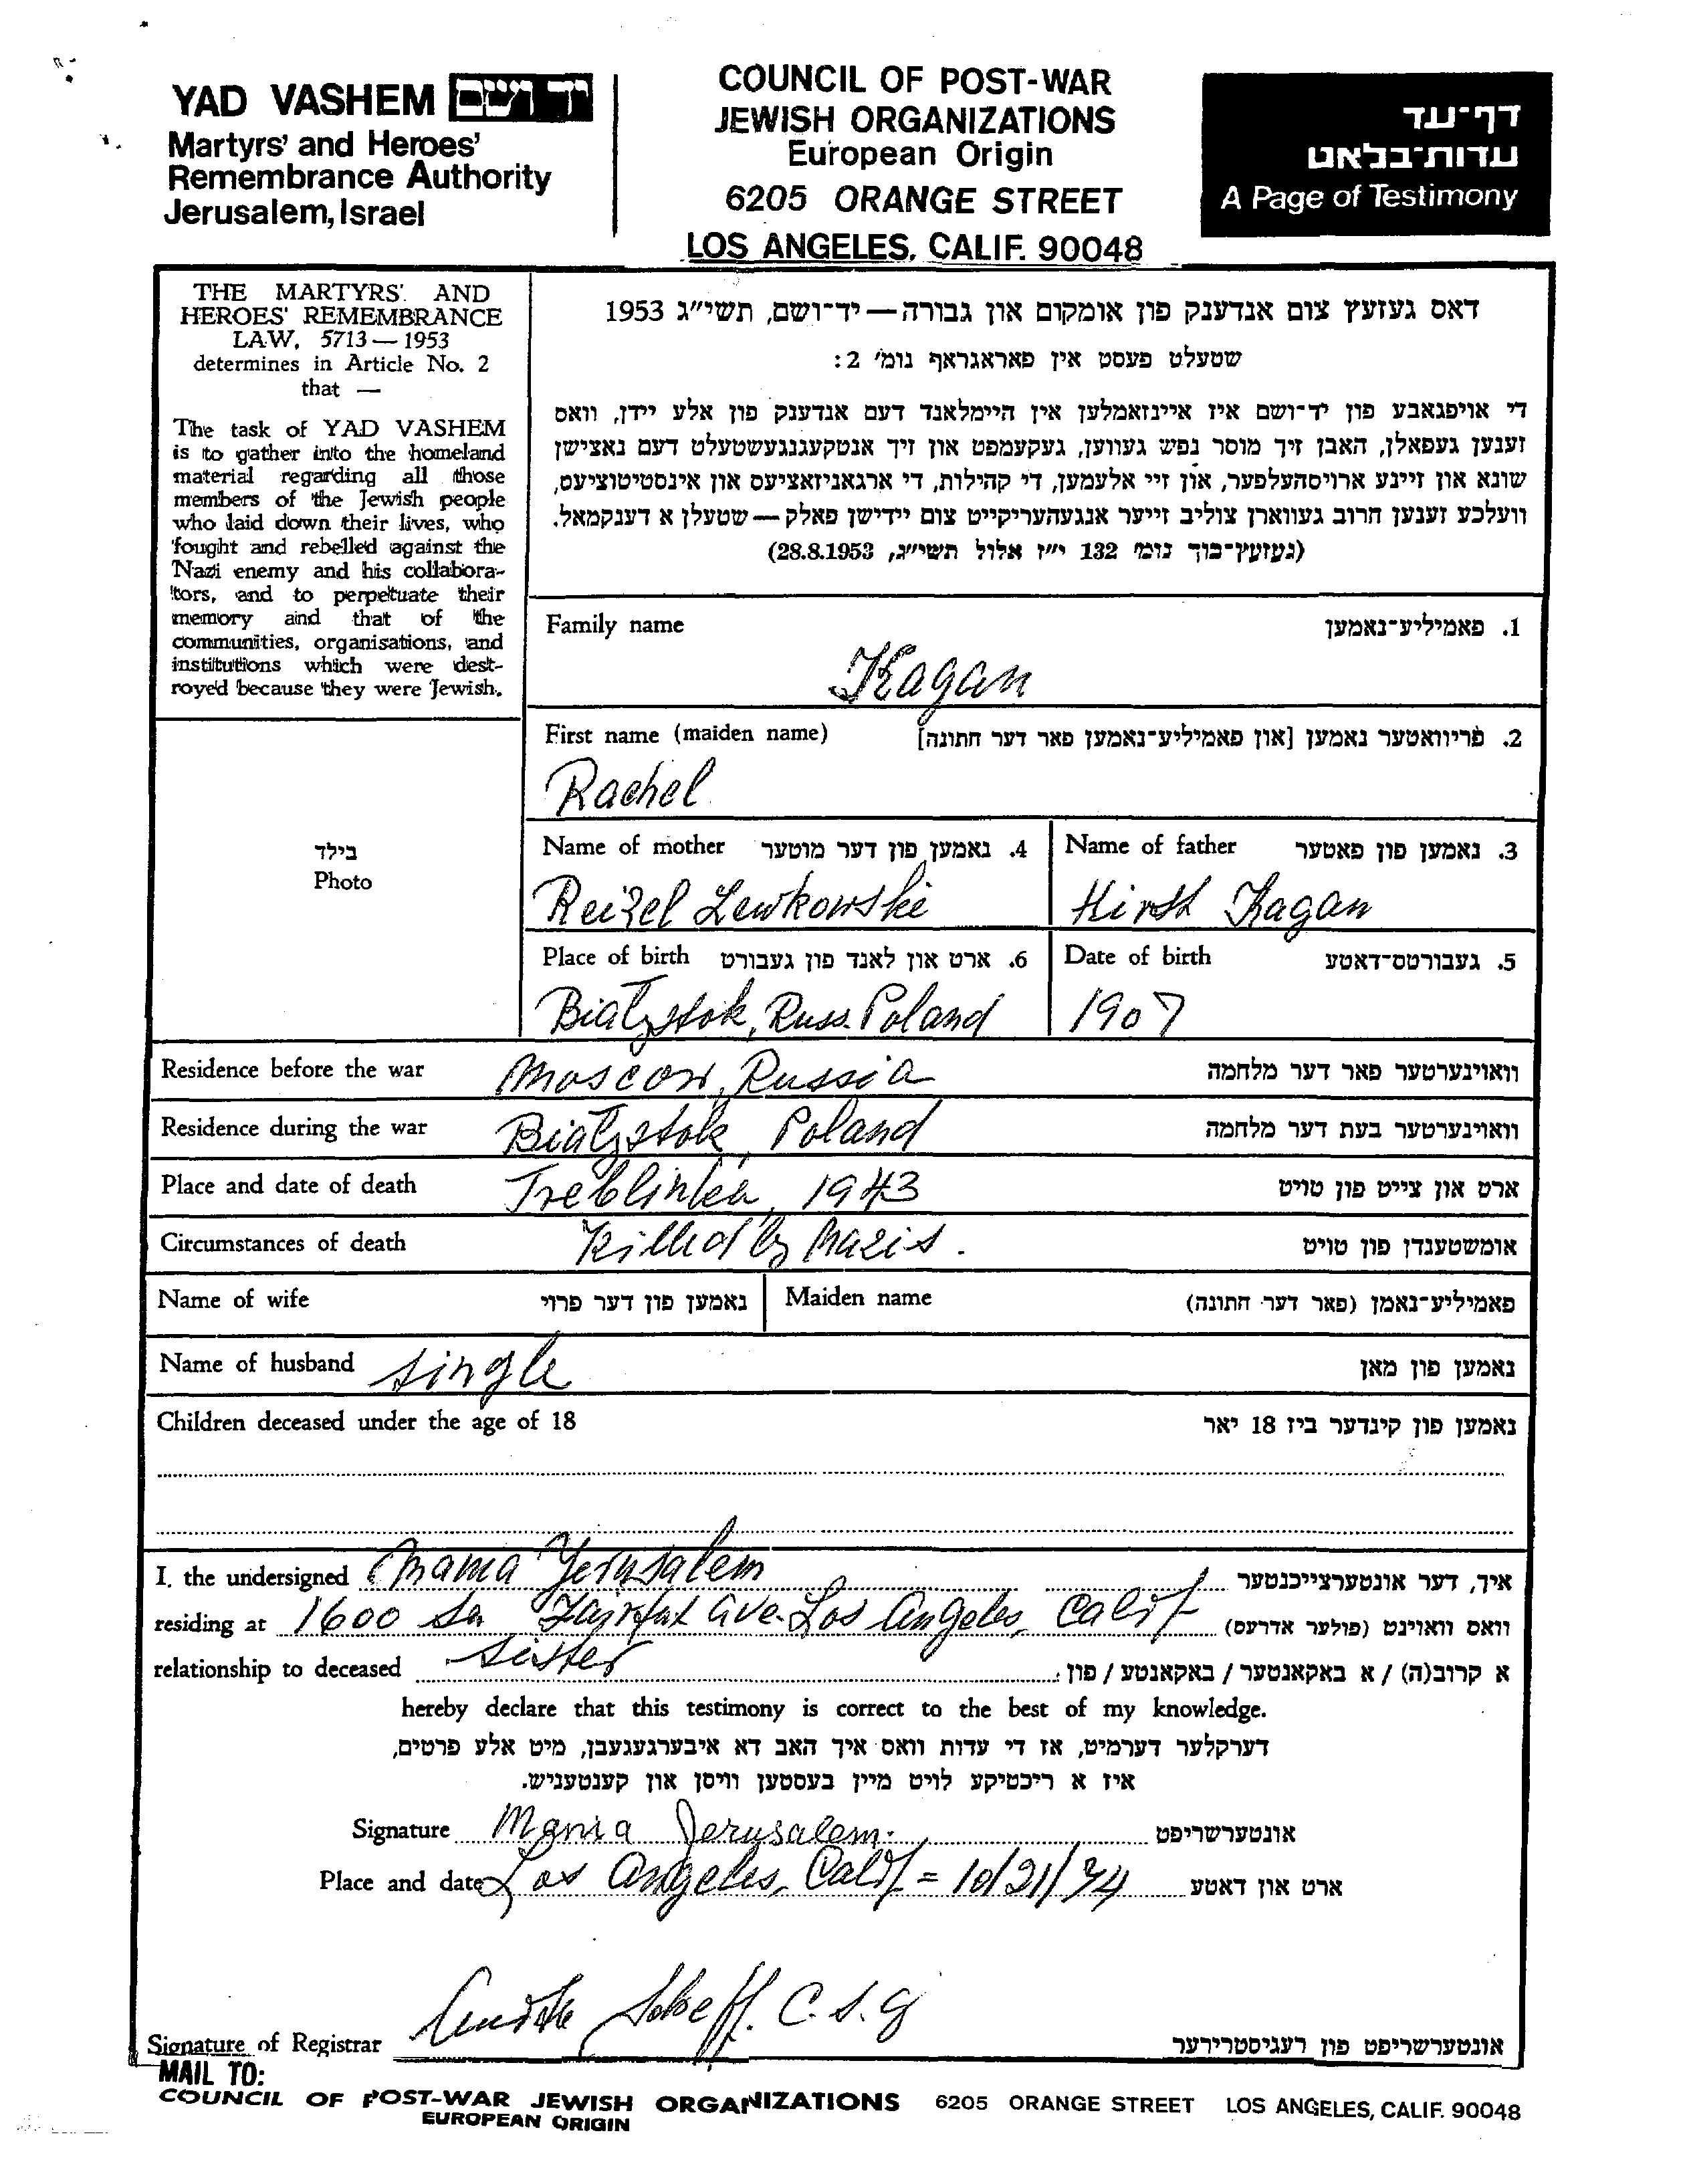 YAD VASHEM יד ושם
Martyrs' and Heroes'
Remembrance Authority
Jerusalem, Israel
COUNCIL OF POST-WAR
JEWISH ORGANIZATIONS
European Origin
6205 ORANGE STREET
LOS ANGELES, CALIF. 90048
דף־עד
עדות־בלאט
A Page of Testimony
THE MARTYRS' AND
HEROES' REMEMBRANCE
LAW, 5713—1953
determines in Article No. 2
that —
The task of YAD VASHEM
is to gather into the homeland
material regarding all those
members of the Jewish people
who laid down their lives, who
fought and rebelled against the
Nazi enemy and his collabora-
tors, and to perpetuate their
memory and that of the
communities, organisations, and
institutions which were dest-
royed because they were Jewish.
דאס געזעץ צום אנדענק פון אומקום און גבורה — יד־ושם, תשי״ג 1953
שטעלט פעסט אין פאראגראף נומ׳ 2:
די אויפגאבע פון יד־ושם איז איינזאמלען אין היימלאנד דעם אנדענק פון אלע יידן, וואס
זענען געפאלן, האבן זיך מוסר נפש געווען, געקעמפט און זיך אנטקעגנגעשטעלט דעם נאצישן
שונא און זיינע ארויסהעלפער, און זיי אלעמען, די קהילות, די ארגאניזאציעס און אינסטיטוציעס,
וועלכע זענען חרוב געווארן צוליב זייער אנגעהעריקייט צום יידישן פאלק — שטעלן א דענקמאל.
(געזעץ־בוך נומ׳ 132 י״ז אלול תשי״ג, 28.8.1953)
Family name 1. פאמיליע־נאמען
Kagan
First name (maiden name) 2. פריוואטער נאמען [און פאמיליע־נאמען פאר דער חתונה]
Rachel
בילד
Photo
Name of mother 4. נאמען פון דער מוטער Name of father 3. נאמען פון פאטער
Reizel Lewkowski Hirsh Kagan
Place of birth 6. ארט און לאנד פון געבורט Date of birth 5. געבורטס־דאטע
Białystok, Russ. Poland 1907
Residence before the war Moscow, Russia וואוינערטער פאר דער מלחמה
Residence during the war Białystok, Poland וואוינערטער בעת דער מלחמה
Place and date of death Treblinka, 1943 ארט און צייט פון טויט
Circumstances of death Killed by Nazis. אומשטענדן פון טויט
Name of wife נאמען פון דער פרוי Maiden name פאמיליע־נאמן (פאר דער חתונה)
Name of husband single נאמען פון מאן
Children deceased under the age of 18 נאמען פון קינדער ביז 18 יאר
I, the undersigned Mania Yerusalem איך, דער אונטערצייכנטער
residing at 1600 So Fairfax Ave. Los Angeles, Calif וואס וואוינט (פולער אדרעס)
relationship to deceased sister א קרוב(ה) / א באקאנטער / באקאנטע / פון:
hereby declare that this testimony is correct to the best of my knowledge.
דערקלער דערמיט, אז די עדות וואס איך האב דא איבערגעגעבן, מיט אלע פרטים,
איז א ריכטיקע לויט מיין בעסטען וויסן און קענטעניש.
Signature Mania Jerusalem. אונטערשריפט
Place and date Los Angeles, Calif = 10/21/74 ארט און דאטע
Signature of Registrar C.S.G אונטערשריפט פון רעגיסטרירער
MAIL TO:
COUNCIL OF POST-WAR JEWISH ORGANIZATIONS 6205 ORANGE STREET LOS ANGELES, CALIF. 90048
EUROPEAN ORIGIN